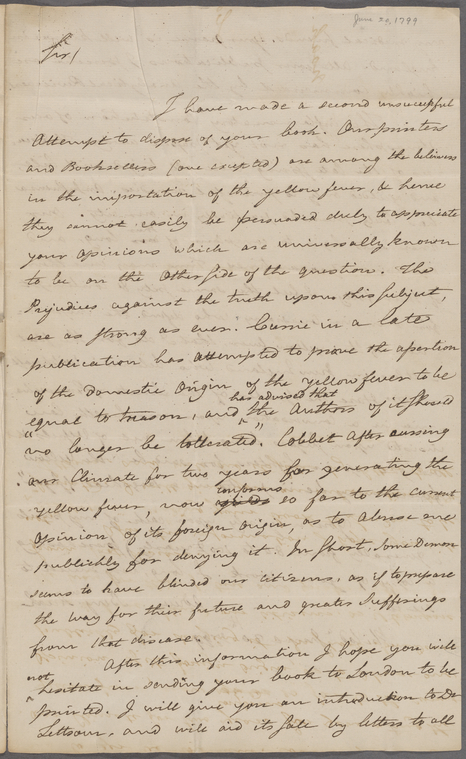 June 24, 1799
Sir/
I have made a second unsuccessful
Attempt to dispose of your book. Our printers
and Booksellers (one excepted) are among the believers
in the importation of the yellow fever, & hence
they cannot easily be persuaded duly to appreciate
your Opinions which are universally known
to be on the Other side of the question. The
Prejudices against the truth upon this subject,
are as strong as ever. Currie in a late
publication has attempted to prove the assertion
of the domestic Origin of the yellow fever to be
has advised that
equal to treason, and the Authors of it should
"no longer be tollerated". Cobbet after cursing
our Climate for two years for generating the
informs
yellow fever, now so far to the current
Opinion of its foreign Origin, as to Abuse me
publickly for denying it. In short, some Demon
seems to have blinded our citizens, as if to prepare
the way for their future and greater sufferings
from that disease.
After this information I hope you will
not
hesitate in sending your book to London to be
printed. I will give you an introduction to Dr
Lettsom, and will aid its sale by letters to all